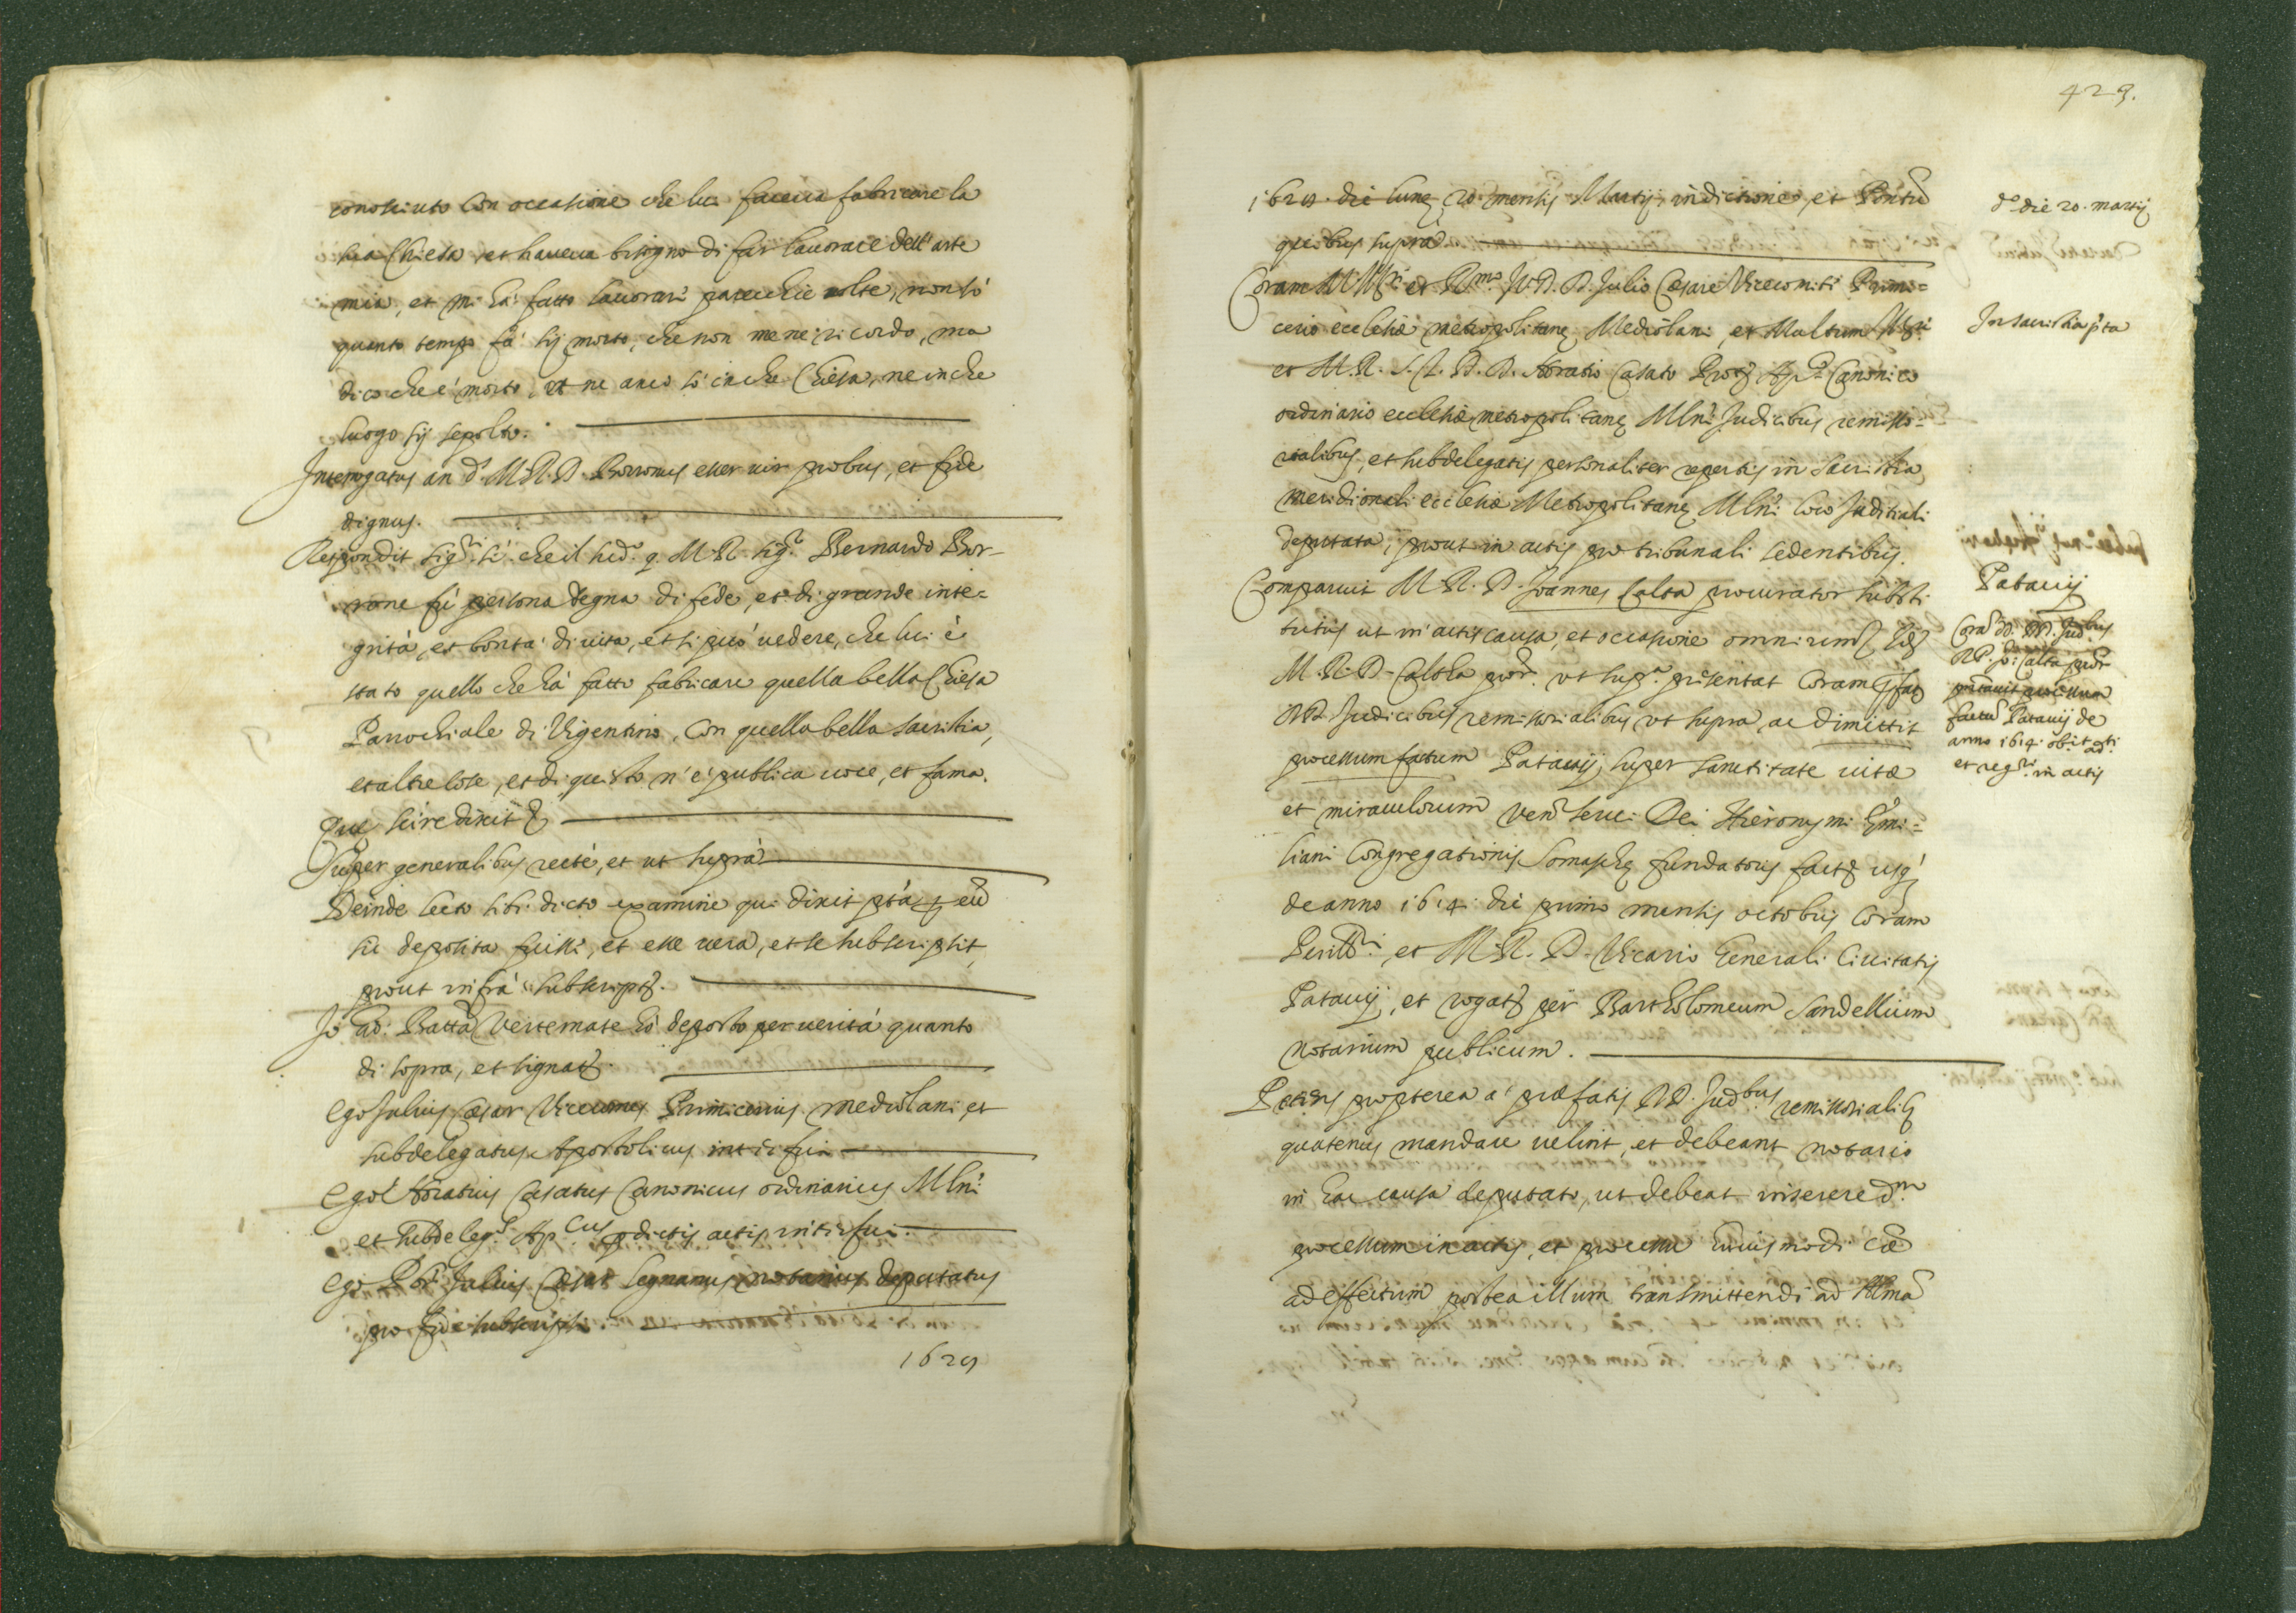 conosciuto con occasione che lui faceva fabricare la
sua Chiesa et haveva bisogno di far lavorare dell'arte
mia, et mi hà fatto lavorare parecchie volte, non sò
quanto tempo fà sij morto, che non me ne ricordo, ma
dico che è morto, et ne anco sò in che Chiesa, ne in che
luogo sij sepolto.
Interrogatus an d.s M. R. D. Borronus esset vir probus, et fide
dignus.
Respondit sig.ri si che il sud.o q. M. R. sig.r Bernardo Bor-
rone fù persona degna di fede, et di grande inte-
grità, et bontà di vita, et si può vedere, che lui è
stato quello che hà fatto fabricare quella bella Chiesa
Parochiale di Vigentino, con quella bella sacristia,
et altre cose, et di questo n'è publica voce, et fama.
Quæ scire dixit
Super generalibus rectè, et ut suprà
Deinde lecto sibi dicto examine qui dixit p̄ta p eū
sic deposita fuisse, et esse vera, et se subscripsit,
prout infrà subscript.
Io Gio: Batta Vertemate hò deposto per verità quanto
di sopra, et signat.
Ego Julius Cæsar Vicecomes Primicerius Mediolani et
subdelegatus Apostolicus interfui
Ego Horatius Casatus Canonicus ordinarius Mlni
et subdeleg.s Ap.cus pdictis actis interfui.
Ego Julius Cæsar Legnanus notarius deputatus
pro fide subscripsi.
1629
429.
1629. die lunę 20. mensis Martij, indictione, et Pontu
quibus suprà
Coram Ill.ri et R.mo J. V. D. D. Julio Cæsare Vicecomiti Primi-
cerio ecclesiæ metropolitanę Mediolani, et Multum Ill.ri
et M. R. D. D. Horatio Casato Prot. Ap.co Canonico
ordinario ecclesiæ metropolitanę Mlni Judicibus remisso-
rialibus, et subdelegatis personaliter repertis in sacristia
meridionali ecclesiæ Metropolitanę Mlni loco Juditiali
deputata, prout in actis pro tribunali sedentibus.
Comparuit M. R. D. Joannes Calta procurator substi
tutus ut in actis causa, et occasione omnium
M. R. D. Calta pror. ut sup.a presentat coram
RR. Judicibus remissorialibus ut supra, ac dimittit
processum fatum Patavij, super sanctitate vitæ
et miraculorum Ven. servi Dei Hieronymi Emi-
liani Congregationis Somaschę fundatoris fact. usq
de anno 1614. die primo mensis octobris coram
Perill.ri, et M. R. D. Vicario Generali Civitatis
Patavij, et rogat. per Bartholomeum Sandellium
notarium publicum.
Petens propterea à præfatis RR. Judbus remissorialib
quatenus mandare velint, et debeant notario
in hac causa deputato, ut debeat inserere d.m
processum in actis, et processu huiusmodi cæ
ad effectum postea illum transmittendi ad Alma
d.o die 20. martij
In sacristia p̄ta
Patavij
Corā dd. RR. Jud.bus
RD. Jo: Calta pror
pntavit processum
factū Patavij de
anno 1614.
et reg.ri in actis